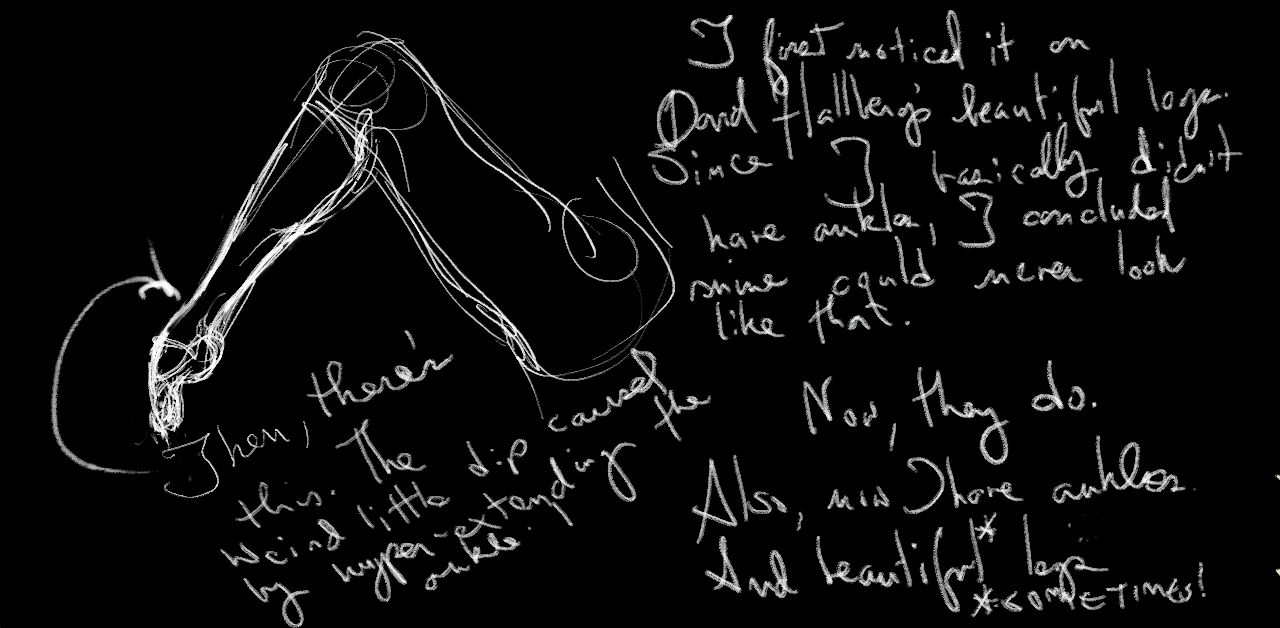 Then, there's
this. The
weird little dip caused
by hyper-extending the
ankle.
I first noticed it on
David Hallberg's beautiful legs.
Since I basically didn't
have ankles, I concluded
mine could never look
like that.
Now, they do.
Also, now I have ankles.
And beautiful* legs
*SOMETIMES!